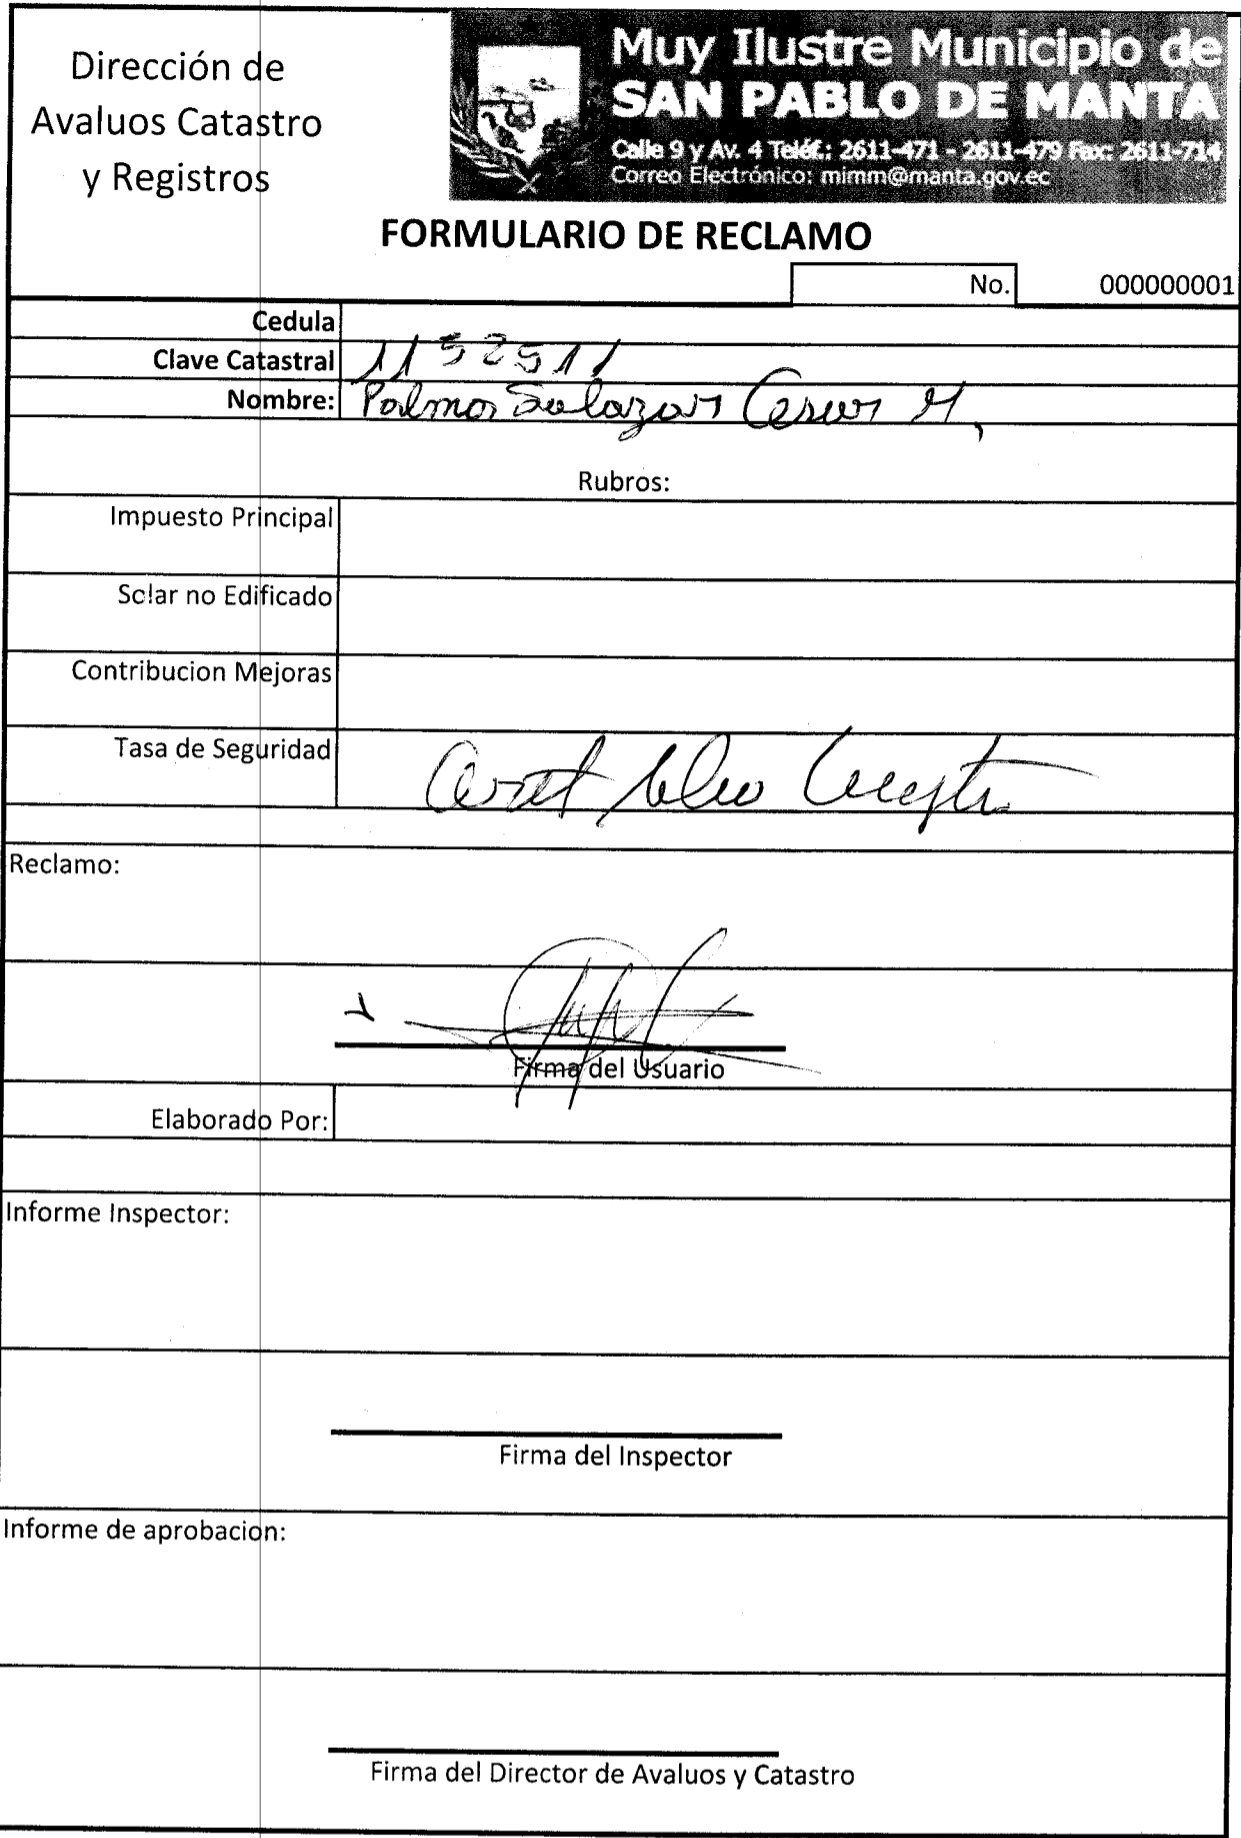 Dirección de
Avaluos Catastro
y Registros
Muy Ilustre Municipio de
SAN PABLO DE MANTA
Calle 9 y Av. 4 Teléf.: 2611-471 - 2611-479 Fax: 2611-714
Correo Electrónico: mimm@manta.gov.ec
FORMULARIO DE RECLAMO
No. 000000001
Cedula
Clave Catastral 1152511
Nombre: Palma Salazar Cesar M,
Rubros:
Impuesto Principal
Solar no Edificado
Contribucion Mejoras
Tasa de Seguridad
Reclamo:
Firma del Usuario
Elaborado Por:
Informe Inspector:
Firma del Inspector
Informe de aprobacion:
Firma del Director de Avaluos y Catastro